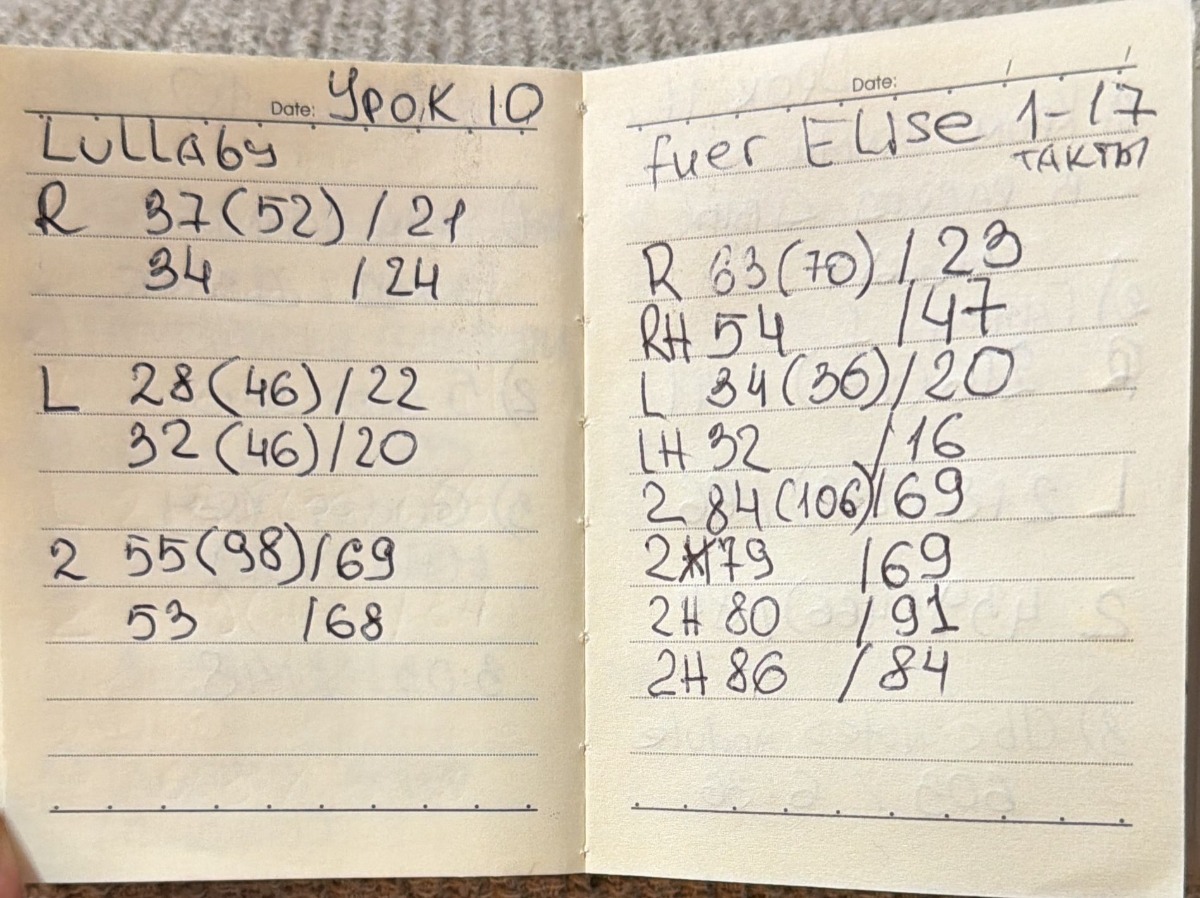 Date: Урок 10
Lullaby
R 37(52)/21
34 /24
L 28(46)/22
32(46)/20
2 55(98)/69
53 /68
Date:
fuer Elise 1-17
такты
R 63(70)/23
RH 54 /47
L 34(36)/20
LH 32 /16
2 84(106)/69
2H 79 /69
2H 80 /91
2H 86 /84